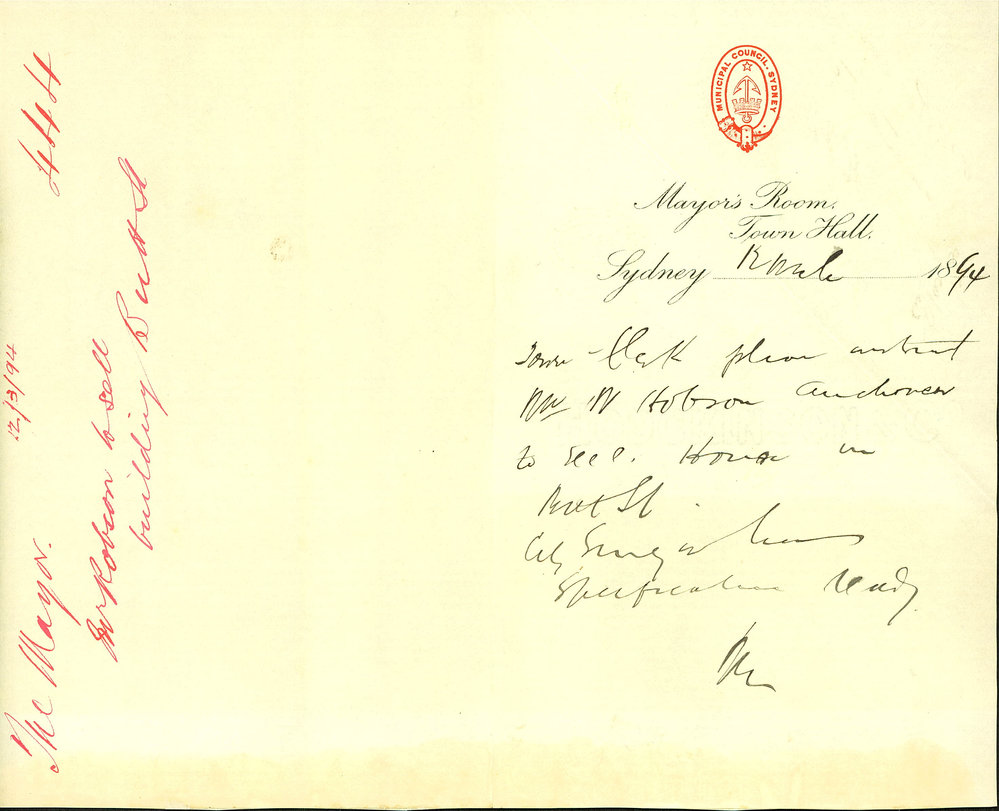 MUNICIPAL COUNCIL. SYDNEY
Mayor's Room,
Town Hall.
Sydney 12 March 1894
Town Clerk please instruct
Mr W Hobson Auctioneer
to sell. House in
Bathurst St.
City Surveyor has
Specification ready
The Mayor.
12/3/94
4444
to sell
building